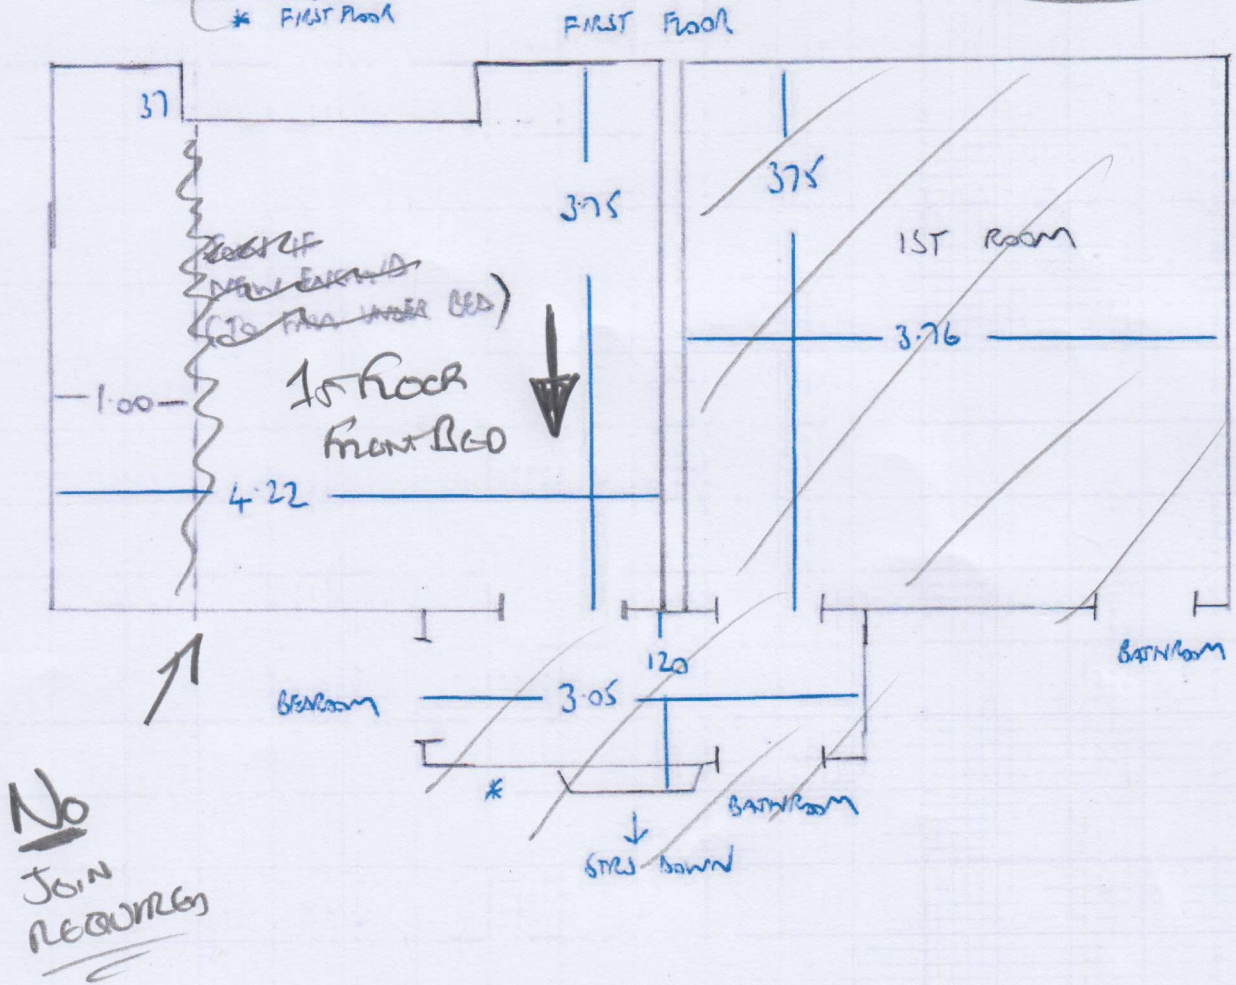 * FIRST FLOOR
FIRST FLOOR
37
3.75
375
1ST ROOM
NEW END
(TO FALL UNDER BED)
3.76
1.00
1ST FLOOR
FRONT BED
4.22
120
BATHROOM
BEDROOM
3.05
*
BATHROOM
STRS DOWN
NO
JOIN
REQUIRED